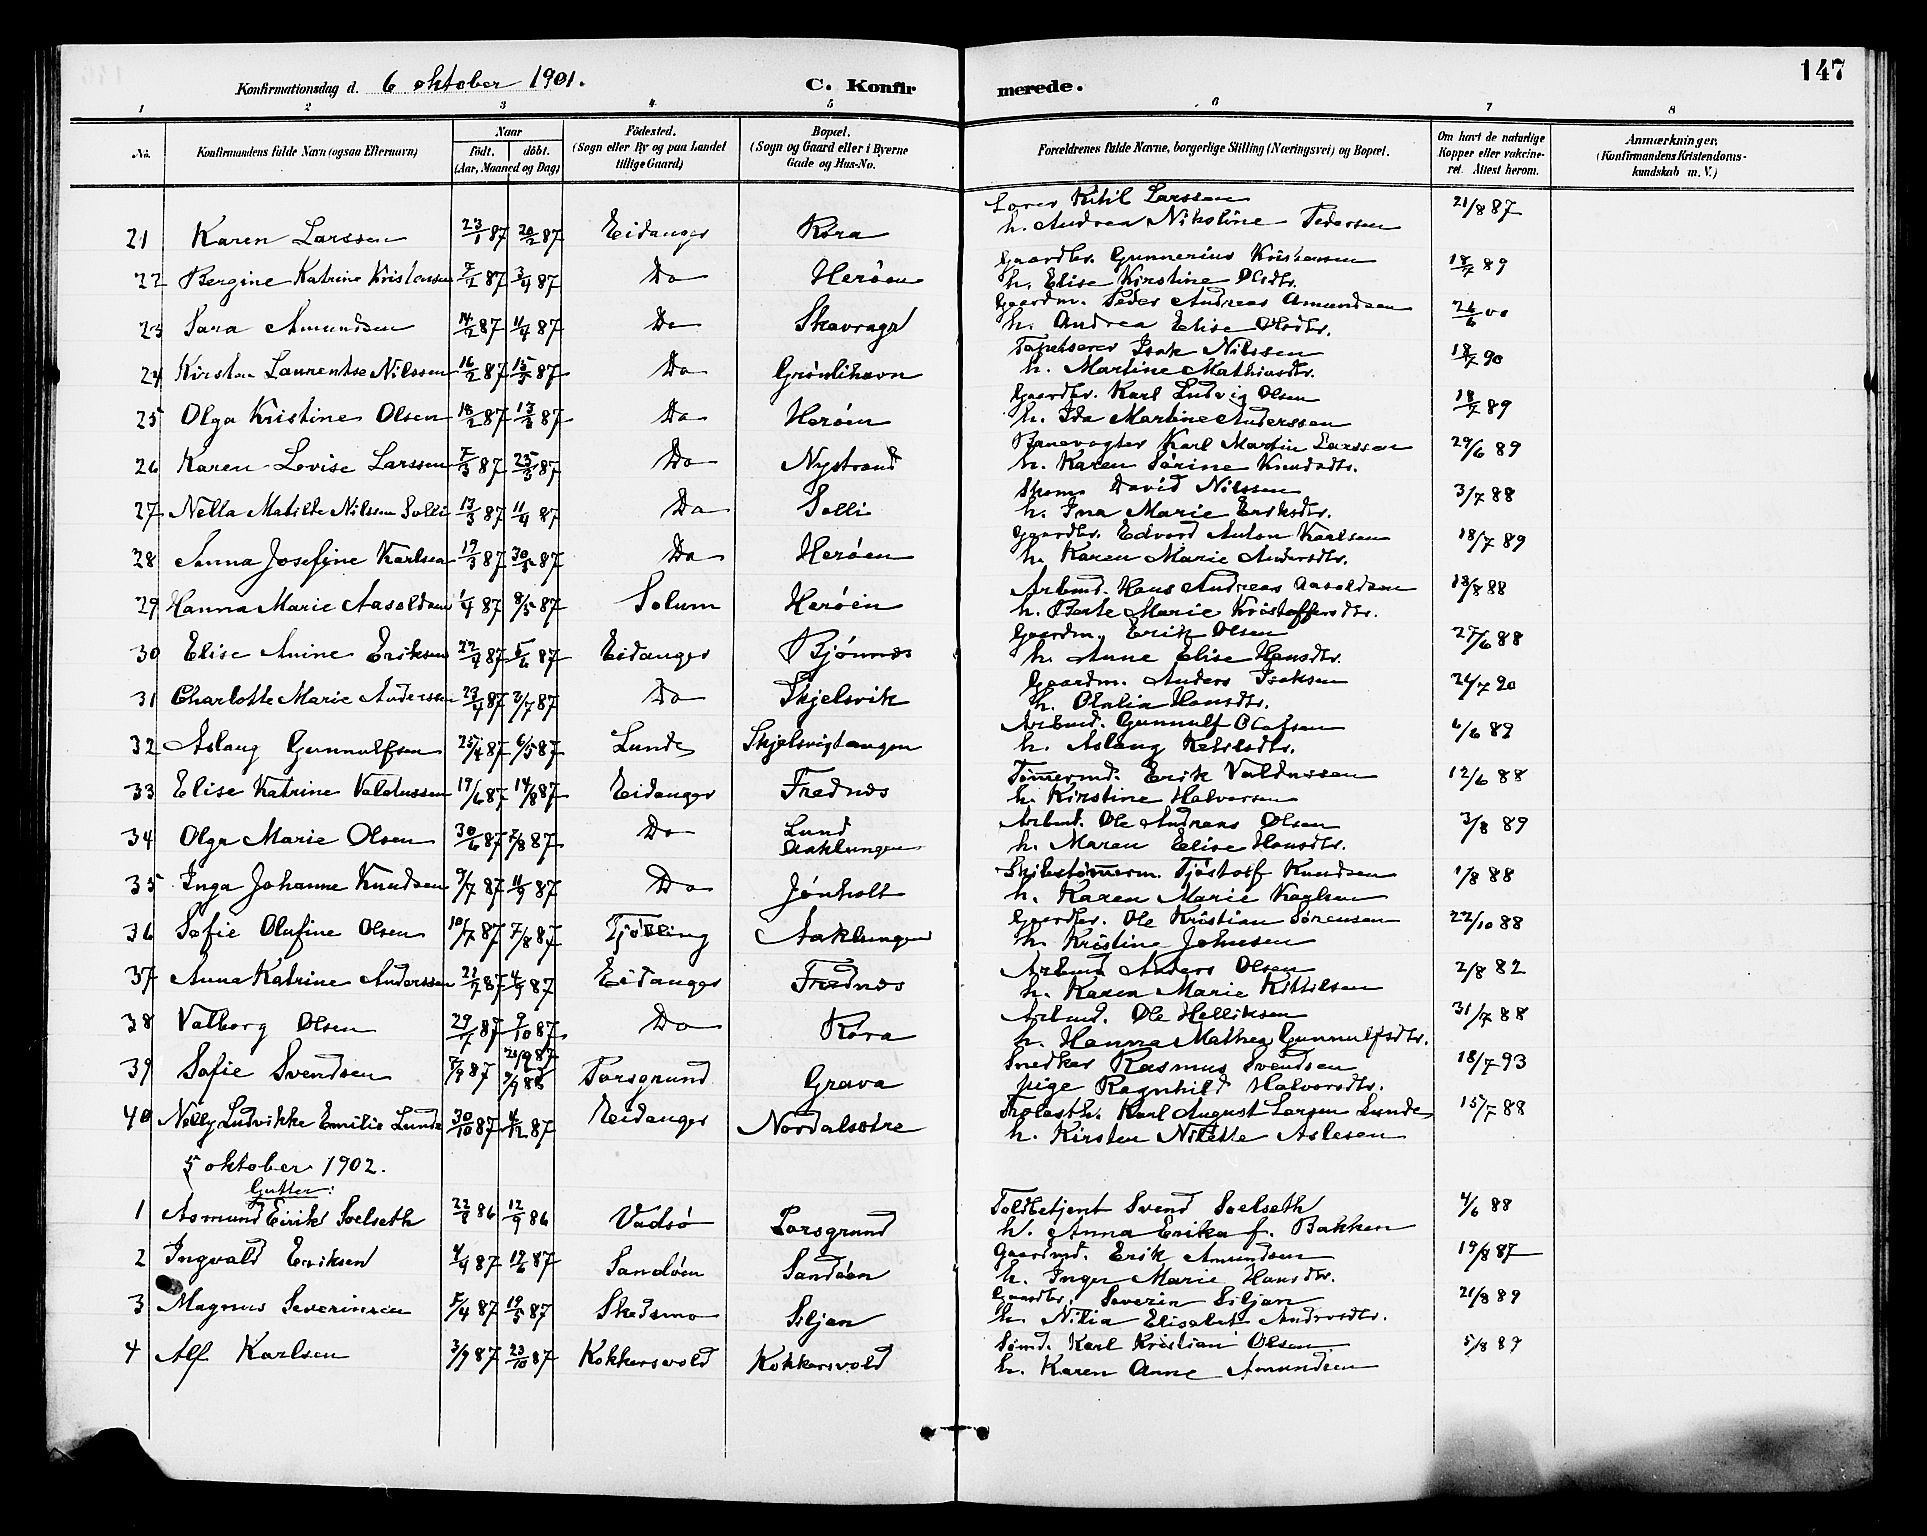 147
Konfirmationsdag d. 6 oktober 1901. C. Konfirmerede.
1 2 3 4 5 6 7 8
No. Konfirmandens fulde Navn (ogsaa Efternavn) Naar Født. døbt. (Aar, Maaned og Dag) Fødested. (Sogn eller By og paa Landet tillige Gaard) Bopæl. (Sogn og Gaard eller i Byerne Gade og Hus-No. Forældrenes fulde Navne, borgerlige Stilling (Næringsvei) og Bopæl. Om havt de naturlige Kopper eller vakcineret. Attest herom. Anmærkninger. (Konfirmandens Kristendomskundskab m. V.)
21 Karen Larssen 23/1 87 20/2 87 Eidanger Røra Kitil Larssen 21/8 87
h. Andrea Nikoline Pedersen
22 Bergine Katrine Kristensen 7/2 87 3/4 87 Do Herøen Gaardbr. Gunnerius Kristensen 18/7 89
h. Elise Kirstine Olsdtr.
23 Sara Amundsen 14/2 87 11/4 87 Do Skavrager Gaardm. Peder Andreas Amundsen 26/6 00
h. Andrea Elise Olsdtr.
24 Kirsten Laurentse Nilssen 16/2 87 15/5 87 Do Grønlihavn Tapetserer Isak Nilssen 18/7 90
h. Martine Mathiasdtr.
25 Olga Kristine Olsen 18/2 87 Do Herøen Gaardbr. Karl Ludvig Olsen 18/7 89
h. Ida Martine Anderssen
26 Karen Lovise Larssen 7/3 87 25/5 87 Do Nystrand Banevogter Karl Martin Larssen 29/6 89
h. Karen Sørine Knudsdtr.
27 Nella Matilde Nilssen Solli 13/3 87 11/4 87 Do Solli Skom. David Nilssen 3/7 88
h. Ina Marie Eriksdtr.
28 Anna Josefine Karlsen 19/3 87 30/5 87 Do Herøen Gaardbr. Edvard Anton Karlsen 18/7 89
h. Karen Marie Andersdtr.
29 Hanna Marie Aasoldsen 1/4 87 8/5 87 Solum Herøen Arbmd. Hans Andreas Aasoldsen 13/8 88
h. Berte Marie Kristoffersdtr.
30 Elise Anine Eriksen 22/4 87 5/6 87 Eidanger Bjønnes Gaardm. Erik Olsen 25/6 88
h. Anne Elise Hansdtr.
31 Charlotte Marie Anderssen 23/4 87 3/7 87 Do Skjelsvik Gaardm. Anders Isaksen 24/7 90
h. Otalia Hansdtr.
32 Aslaug Gunnulfsen 25/4 87 6/5 87 Lunde Skjelsvigtangen Arbmd. Gunnulf Olafsen 6/6 89
h. Aslaug Ketilsdtr.
33 Elise Katrine Valdussen 17/6 87 14/8 87 Eidanger Frednes Tømermd. Erik Valdussen 12/6 88
h. Kirstine Halvorsen
34 Olga Marie Olsen 30/6 87 7/8 87 Do Lund Aaklungen Arbmd. Ole Andreas Olsen 3/8 89
h. Maren Elise Hansdtr.
35 Inga Johanne Knudsen 9/7 87 11/9 87 Do Jønholt Skibstømerm. Tjøstolf Knudsen 1/8 88
h. Karen Marie Karlsen
36 Sofie Olufine Olsen 10/7 87 7/8 87 Tjølling Aaklungen Gaardbr. Ole Kristian Sørensen 22/10 88
h. Kristine Johnsen
37 Anna Katrine Anderssen 21/7 87 4/9 87 Eidanger Frednes Arbmd Anders Olsen 2/8 82
h. Karen Marie Kittilsen
38 Valborg Olsen 29/7 87 9/10 87 Do Røra Arbmd. Ole Helliksen 31/7 88
h. Hanna Mathea Gunnulfsdtr.
39 Sofie Svendsen 7/9 87 Porsgrund Grava Snedker Rasmus Svendsen 18/7 93
pige Ragnhild Halvorsdtr.
40 Nelly Ludvikke Emilie Lunde 30/10 87 4/12 87 Eidanger Nordalsetre Karl August Larsen Lunde 15/7 88
h. Kirsten Nilette Aslesen
5 oktober 1902.
Gutter:
1 Asmund Eirik Soelseth 22/8 86 12/9 86 Vadsø Porsgrund Toldbetjent Svend Soelseth 4/6 88
h. Anna Erika f. Bakken
2 Ingvald Eriksen 4/4 87 19/6 87 Sandøen Sandøen Gaardmd. Erik Amundsen 19/8 87
h. Inger Marie Hansdtr.
3 Magnus Severinsen 5/4 87 19/5 87 Skedsmo Siljan Gaardbr. Severin Siljan 21/8 89
h. Nilia Elisabet Andersdtr.
4 Alf Karlsen 3/9 87 23/10 87 Kokkersvold Kokkersvold Sømd. Karl Kristian Olsen 5/8 89
h. Karen Anne Amundsen